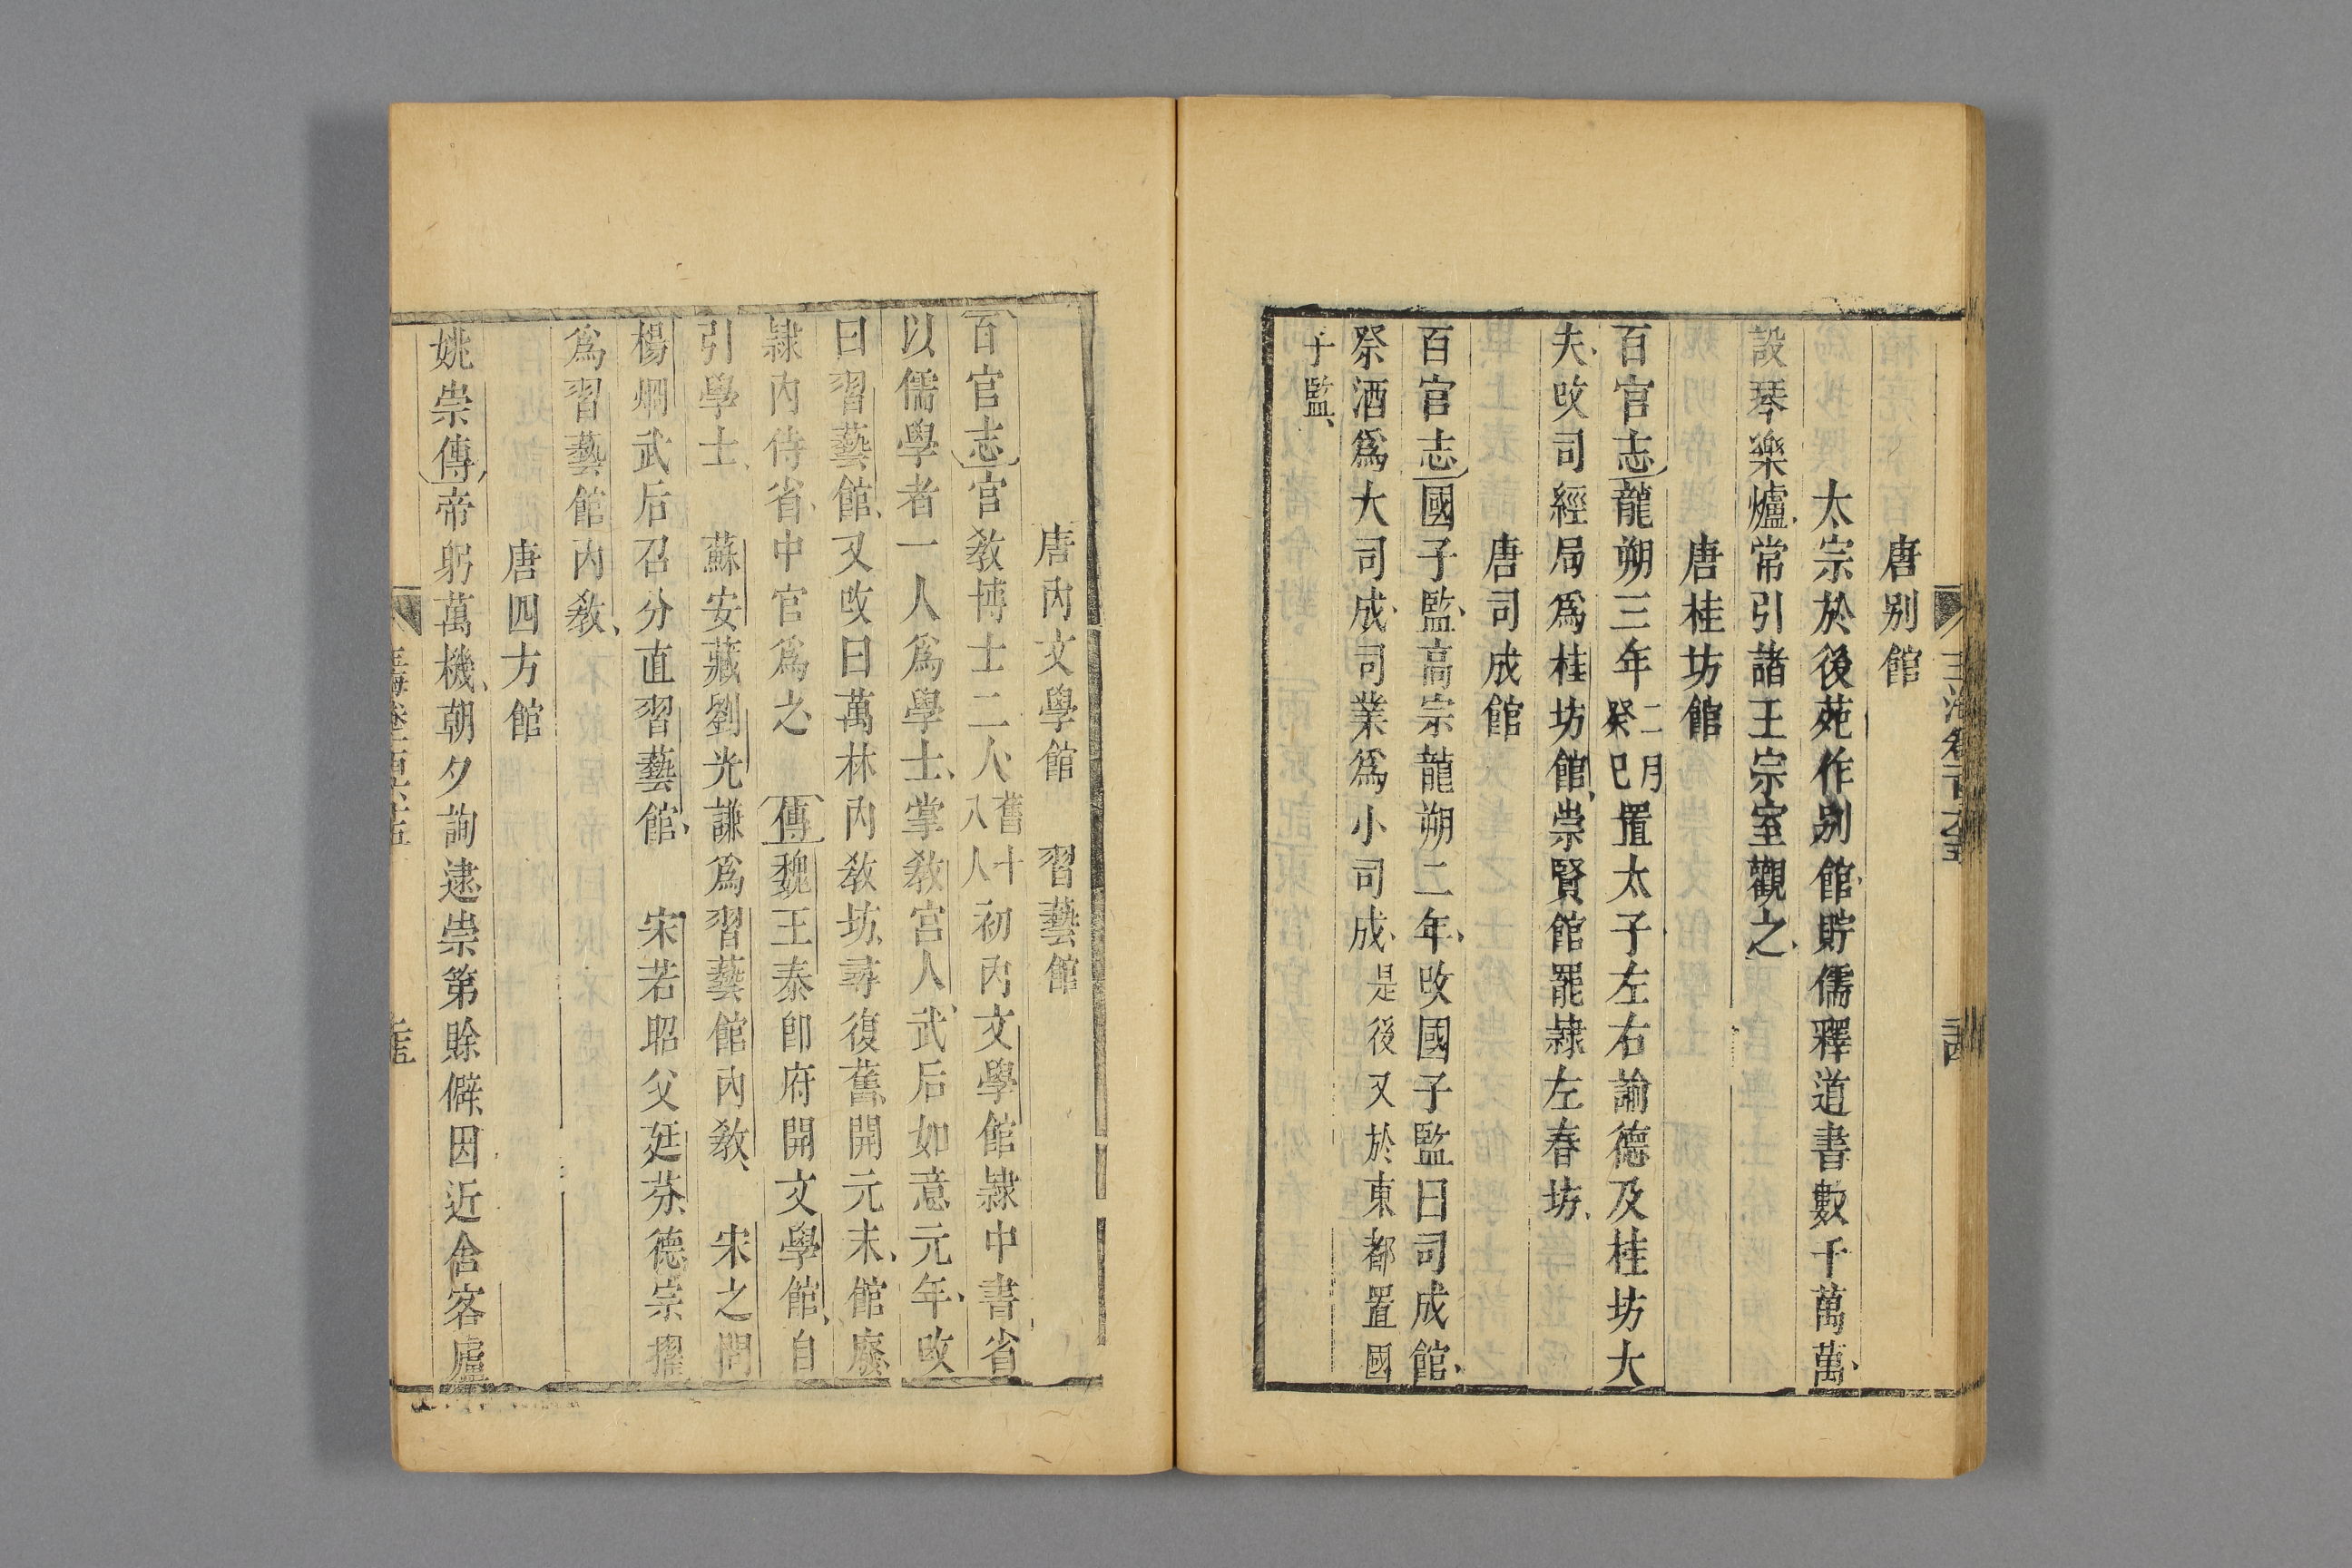 唐别館
太宗於後苑作别館貯儒釋道書數千萬萬
設琴樂爐常引諸王宗室觀之
唐桂坊館
百官志龍朔三年二月癸巳置太子左右諭德及桂坊大
夫攺司經局爲桂坊館崇賢館罷隷左春坊
唐司成館
百官志國子監高宗龍朔二年攺國子監曰司成館
祭酒爲大司成司業爲小司成是後又於東都置國
子監
唐内文學館 習藝館
百官志宫敎博士二人舊十八人初内文學館隷中書省
以儒學者一人爲學士掌敎宫人武后如意元年攺
曰習藝館又攺曰萬林内敎坊尋復舊開元末館廢
隷内侍省中官爲之 傳魏王泰卽府開文學館自
引學士 蘇安藏劉光謙爲習藝館内敎 宋之問
楊烱武后召分直習藝館 宋若昭父廷芬德宗擢
爲習藝館内敎
唐四方館
姚崇傳帝躬萬機朝夕詢逮崇第賒僻因近舍客廬